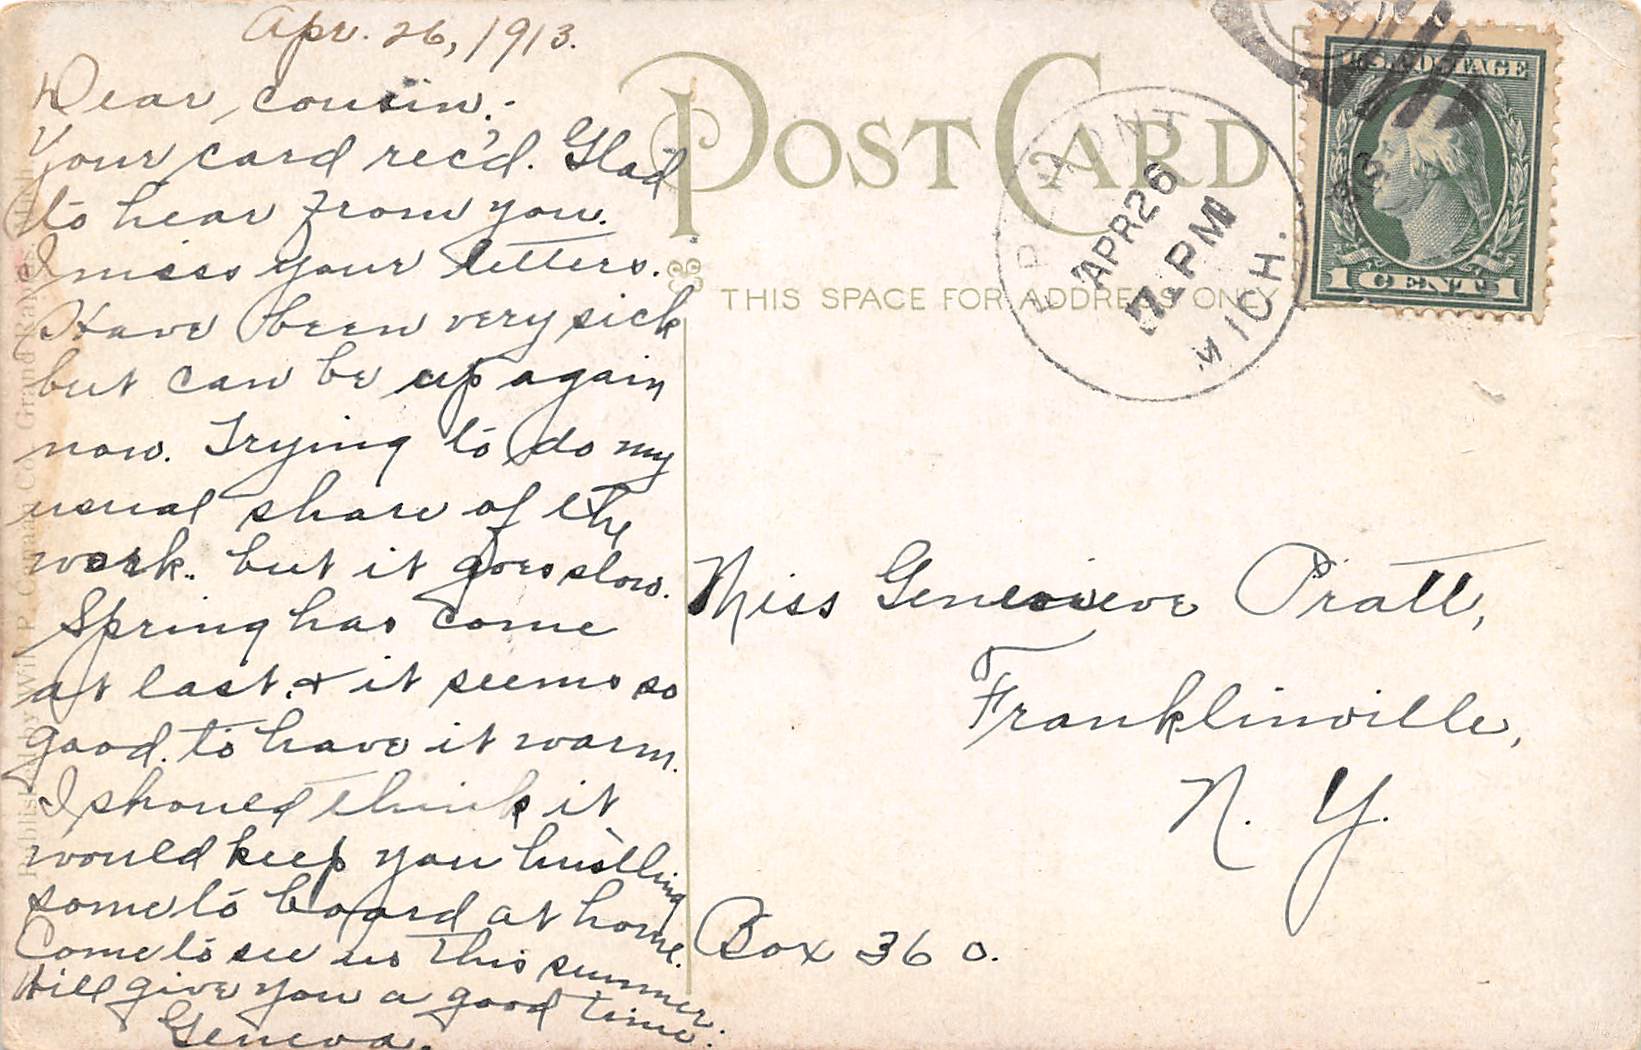 Apr. 26, 1913.
Dear cousin:-
Your card rec'd. Glad
to hear from you.
I miss your letters.
Have been very sick
but can be up again
now. Trying to do my
usual share of the
work. but it goes slow.
Spring has come
at last. + it seems so
good. to have it warm.
I should think it
would keep you hustling
some to board at home.
Come to see us this summer.
Will give you a good time.
Geneva.
POST CARD
THIS SPACE FOR ADDRESS ONLY
APR 26
7 PM
MICH.
U.S. POSTAGE
1 CENT 1
Miss Genevieve Pratt,
Franklinville,
N. Y.
Box 360.